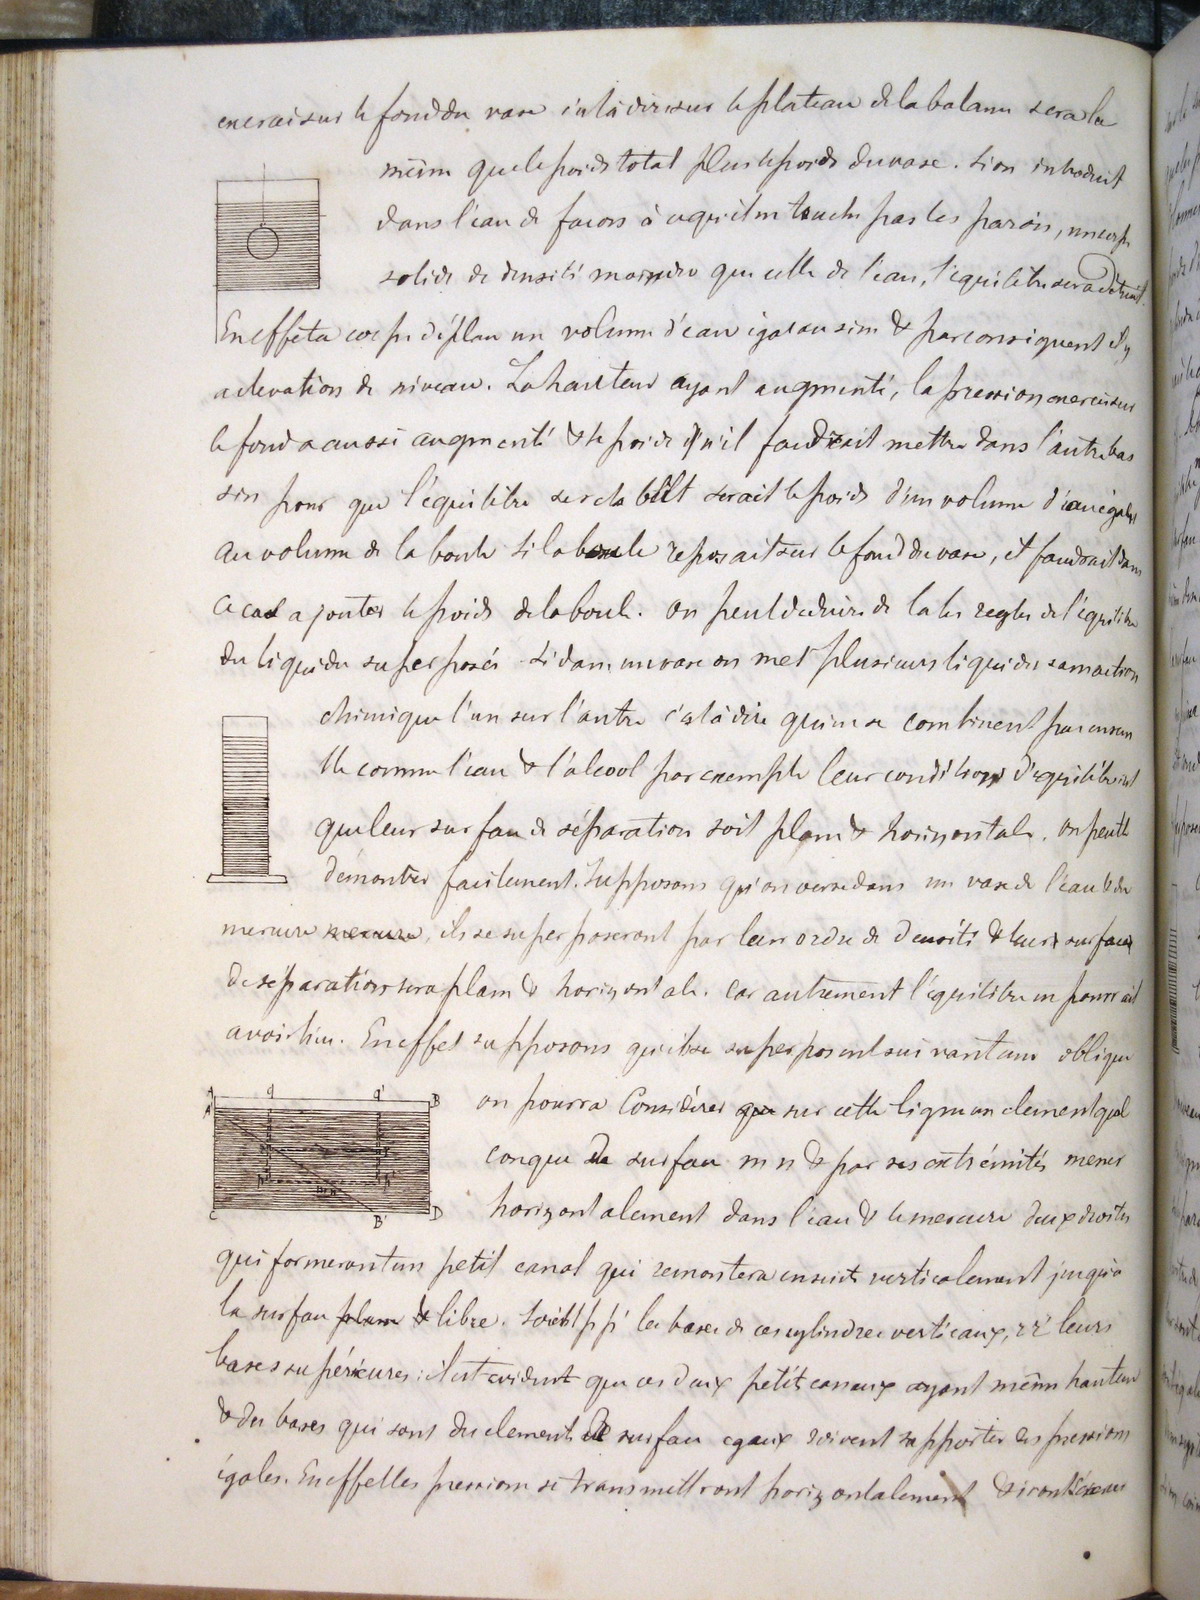 exercée sur le fond du vase c'est à dire sur le plateau de la balance sera la
même que le poids total plus le poids du vase. Si on introduit
dans l'eau de façons à ce qu'il ne touche pas les parois, un corps
solide de densité moindre que celle de l'eau, l'équilibre sera détruit.
En effet ce corps déplace un volume d'eau égal au sien & par conséquent il y
a élévation de niveau. La hauteur ayant augmenté, la pression exercée sur
le fond a aussi augmenté & le poids qu'il faudrait mettre dans l'autre bas
sin pour que l'équilibre se rétablît serait le poids d'un volume d'eau égal
au volume de la boule Si la boule reposait sur le fond du vase, il faudrait dans
ce cas ajouter le poids de la boule. On peut déduire de là les règles de l'équilibre
des liquides superposés Si dans un vase on met plusieurs liquides sans action
chimique l'un sur l'autre c'est à dire qui ne se combinent pas ensem
ble comme l'eau & l'alcool par exemple leur condition d'équilibre est
que leur surface de séparation soit plane & horizontale. On peut le
démontrer facilement. Supposons qu'on verse dans un vase de l'eau & du
mercure mercure, ils se superposeront par leur ordre de densité & leurs surfaces
de séparation sera plane & horizontale. Car autrement l'équilibre ne pourrait
avoir lieu. En effet supposons qu'ils se superposent suivant une oblique
A q q' B
A'
on pourra considérer que sur cette ligne un élément quel
conque de surface m n & par ses extrémités mener
C B' D
horizontalement dans l'eau & le mercure deux droites
qui formeront un petit canal qui remontera ensuite verticalement jusqu'à
la surface plane & libre. Soient p p' les bases de ces cylindres verticaux, r r' leurs
bases supérieures : il est évident que ces deux petits canaux ayant même hauteur
& des bases qui sont des éléments de surface égaux doivent supporter des pressions
égales. En effet les pressions se transmettront horizontalement & iront s'exercer